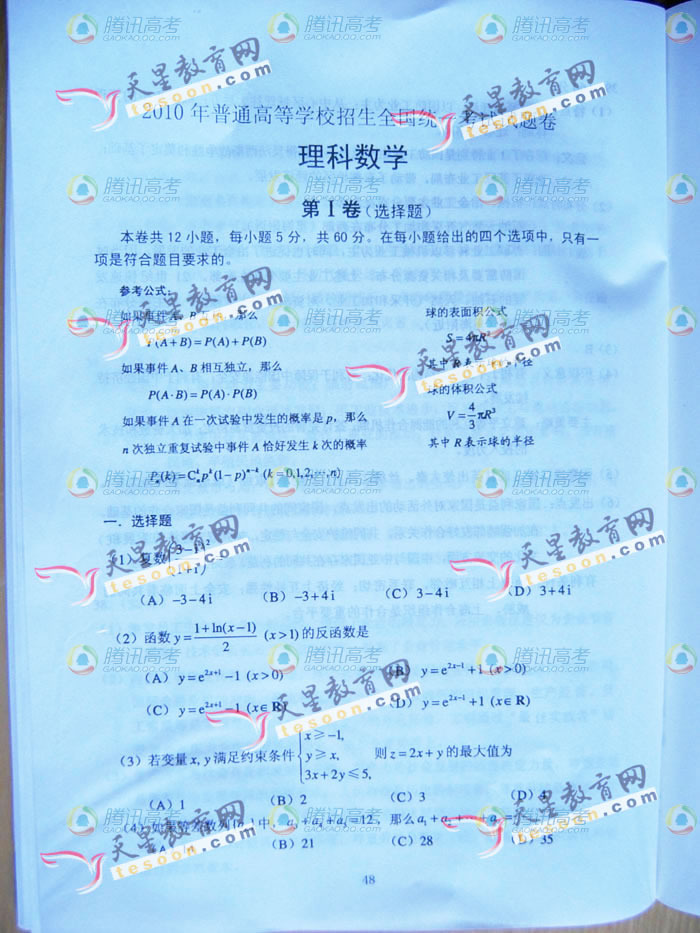 2010 年普通高等学校招生全国统一考试试题卷
理科数学
第 I 卷(选择题)
本卷共 12 小题，每小题 5 分，共 60 分。在每小题给出的四个选项中，只有一
项是符合题目要求的。
参考公式：
如果事件 A、B 互斥，那么
P(A+B)=P(A)+P(B)
如果事件 A、B 相互独立，那么
P(A·B)=P(A)·P(B)
如果事件 A 在一次试验中发生的概率是 p，那么
n 次独立重复试验中事件 A 恰好发生 k 次的概率
Pₙ(k)=Cₙᵏpᵏ(1−p)ⁿ⁻ᵏ (k=0,1,2,…,n)
球的表面积公式
S=4πR²
其中 R 表 径
球的体积公式
V=4/3πR³
其中 R 表示球的半径
一．选择题
(1) 复数 (3−i / 1+i)² =
(A) −3−4i (B) −3+4i (C) 3−4i (D) 3+4i
(2) 函数 y=(1+ln(x−1))/2 (x>1) 的反函数是
(A) y=e²ˣ⁺¹−1 (x>0) (B) y=e²ˣ⁻¹+1 (x>0)
(C) y=e²ˣ⁺¹−1 (x∈R) (D) y=e²ˣ⁻¹+1 (x∈R)
(3) 若变量 x, y 满足约束条件 { x≥−1, y≥x, 3x+2y≤5, 则 z=2x+y 的最大值为
(A) 1 (B) 2 (C) 3 (D) 4
(4) 如果等差数列 中，a₃+a₄+a₅=12，那么 a₁+a₂+…+a₇=
(A) 14 (B) 21 (C) 28 (D) 35
48
腾讯高考
GAOKAO.QQ.COM
天星教育网
tesoon.com